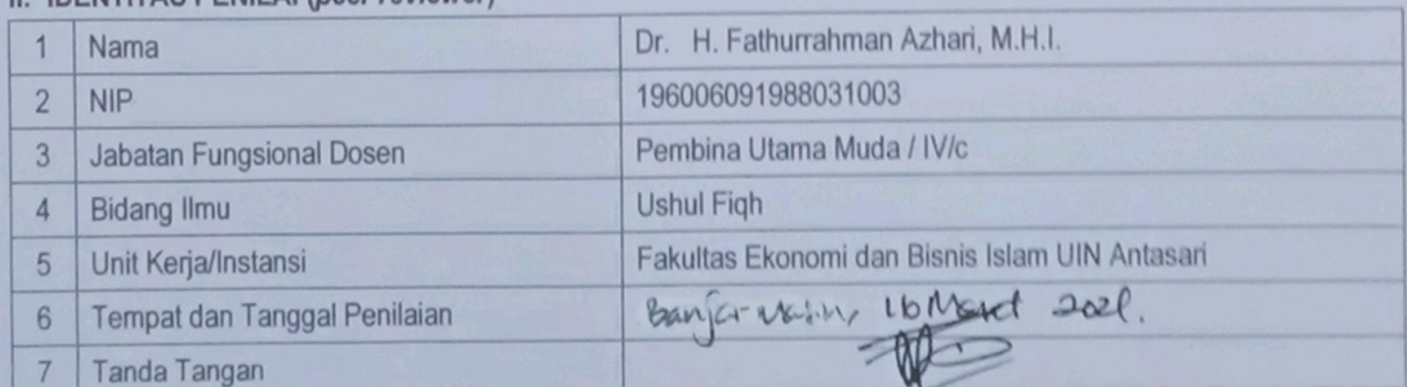 II. IDENTITAS PENILAI (peer reviewer)
1 Nama Dr. H. Fathurrahman Azhari, M.H.I.
2 NIP 196006091988031003
3 Jabatan Fungsional Dosen Pembina Utama Muda / IV/c
4 Bidang Ilmu Ushul Fiqh
5 Unit Kerja/Instansi Fakultas Ekonomi dan Bisnis Islam UIN Antasari
6 Tempat dan Tanggal Penilaian Banjarmasin, 16 Maret 2021.
7 Tanda Tangan